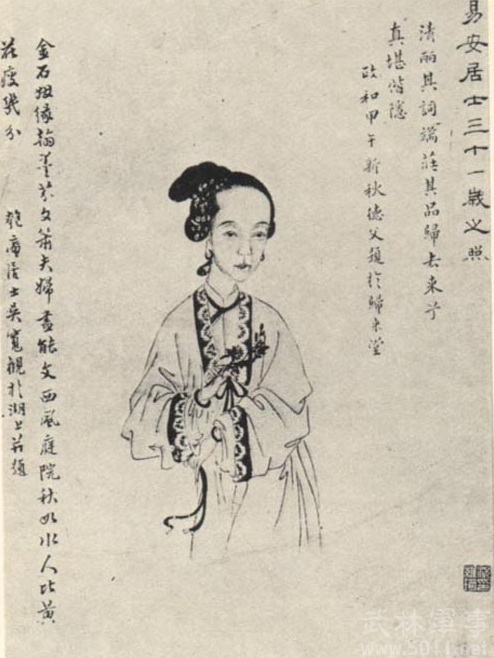 易安居士三十一歲之照
清丽其詞端莊其品歸去來兮
真堪偕隱
政和甲午新秋德父題於歸来堂
金石姻緣翰墨芬文簫夫婦盡能文西風庭院秋如水人比黃
花瘦幾分
匏庵居士吳寬觀於湖上并題
武林軍事
www.5011.net